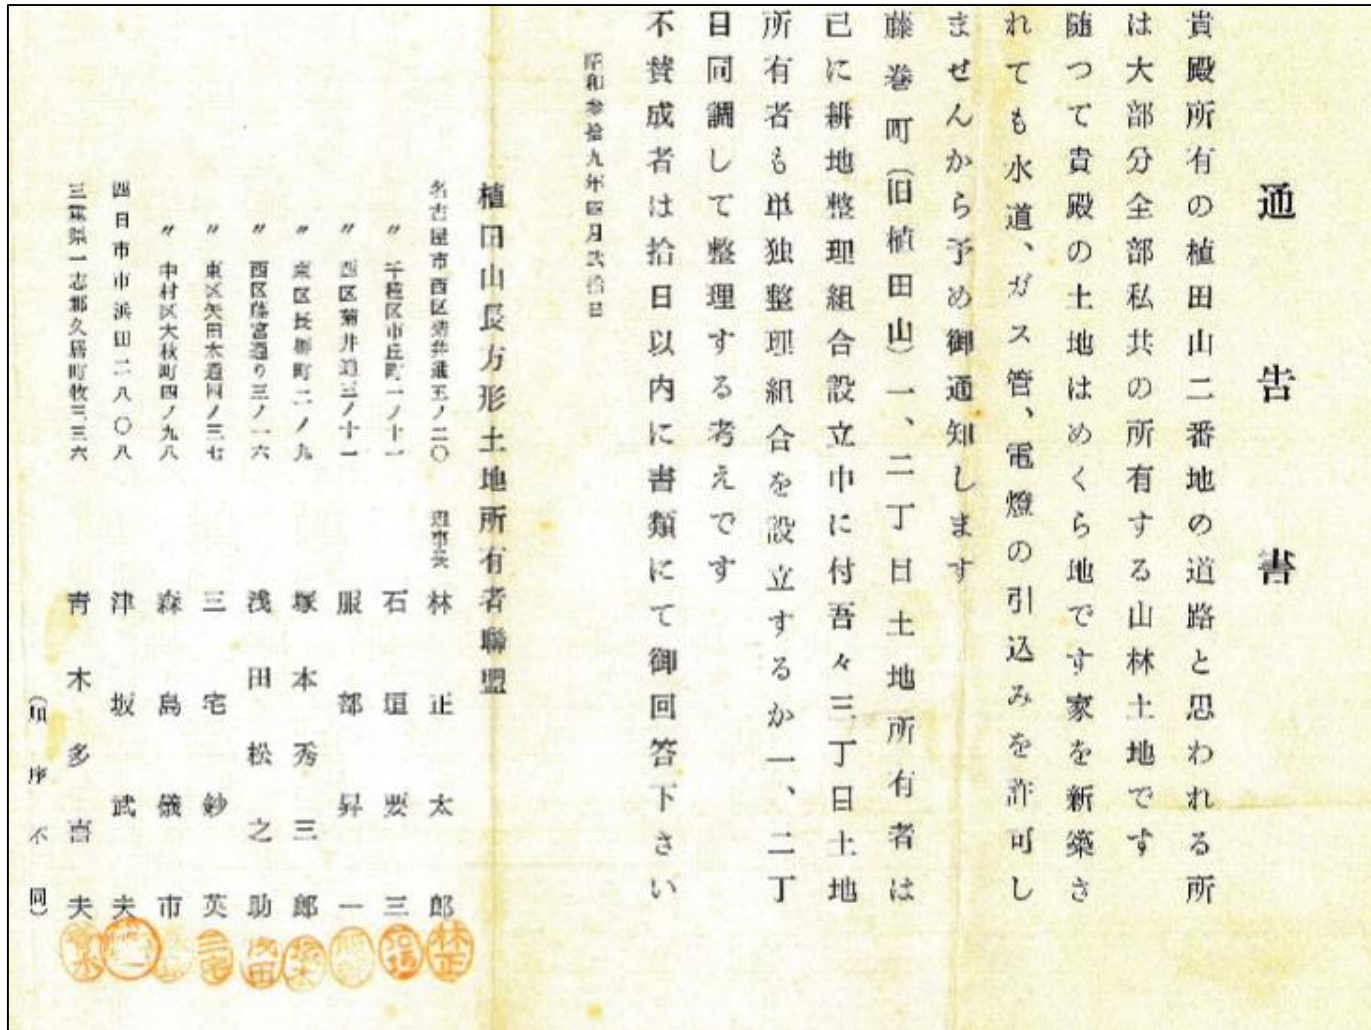 通告書
貴殿所有の植田山二番地の道路と思われる所
は大部分全部私共の所有する山林土地です
随つて貴殿の土地はめくら地です家を新築さ
れても水道、ガス管、電燈の引込みを許可し
ませんから予め御通知します
藤巻町(旧植田山)一、二丁目土地所有者は
已に耕地整理組合設立中に付吾々三丁目土地
所有者も単独整理組合を設立するか一、二丁
目同調して整理する考えです
不賛成者は拾日以内に書類にて御回答下さい
昭和参拾九年四月弐拾日
植田山長方形土地所有者聯盟
名古屋市西区菊井通五ノ二〇 理事長 林正太郎
〃 千種区市丘町一ノ十一 石垣要三
〃 西区菊井通三ノ十一 服部昇一
〃 東区長塀町二ノ九 塚本秀三郎
〃 西区 通り三ノ一六 浅田松之助
〃 東区矢田本通四ノ三七 三宅鈔英
〃 中村区大秋町四ノ九八 森島儀市
四日市市浜田二八〇八 津坂武夫
三重県一志郡久居町牧三三六 青木多喜夫
(順序不同)
林正
石垣
塚本
浅田
三宅
青木